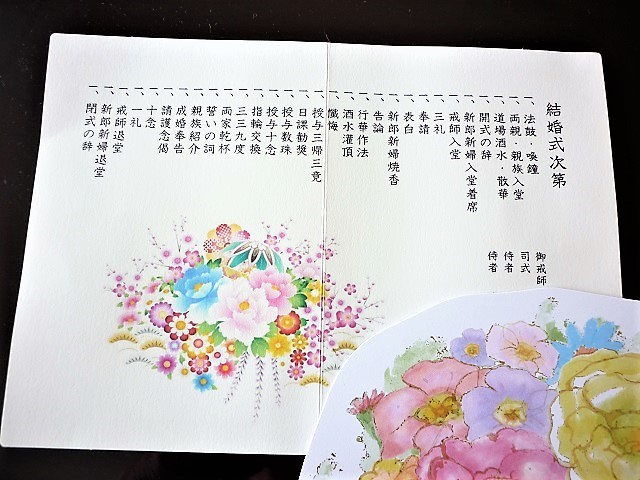 結婚式次第
一、法鼓・喚鐘
一、両親・親族入堂
一、道場洒水・散華
一、開式の辞
一、新郎新婦入堂着席
一、戒師入堂
一、三礼
一、奉請
一、表白
一、新郎新婦焼香
一、告諭
一、行華作法
一、洒水灌頂
一、懺悔
一、授与三帰三竟
一、日課勧奨
一、授与数珠
一、授与十念
一、指輪交換
一、三三九度
一、両家乾杯
一、誓いの詞
一、親族紹介
一、成婚奉告
一、請護念偈
一、十念
一、一礼
一、戒師退堂
一、新郎新婦退堂
一、閉式の辞
御戒師
司式
侍者
侍者